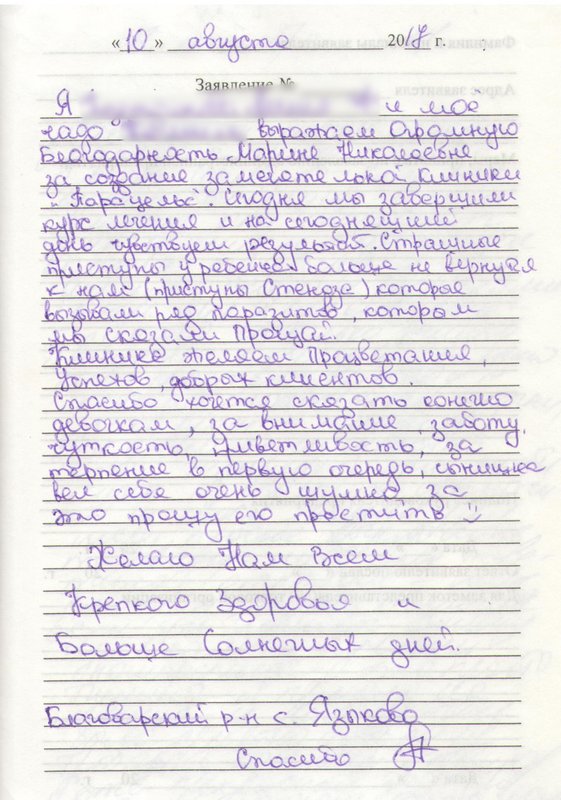 «10» августа 2017 г.
Заявление №
Я и моё
чадо выражаем Огромную
Благодарность Марине Николаевне
за создание замечательной Клиники
"Парацельс". Сегодня мы завершили
курс лечения и на сегодняшний
день чувствуем результат. Страшные
приступы у ребёнка больше не вернутся
к нам (приступы Стенозе) которые
вызывали ряд паразитов, которым
мы сказали Прощай.
Клинике желаем Процветания,
Успехов, добрых клиентов.
Спасибо хочется сказать конечно
девочкам, за внимание, заботу,
чуткость, приветливость, за
терпение в первую очередь, сынишка
вел себе очень шумно за
это прошу его простить
Желаю Нам Всем
Крепкого Здоровья и
Больше Солнечных дней.
Благоварский р-н с. Языково
Спасибо